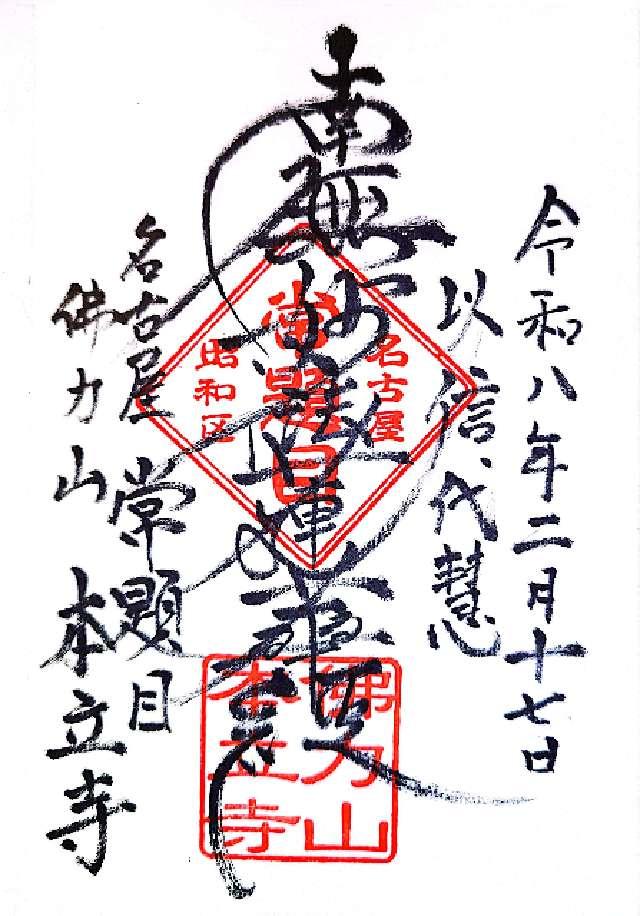 令和八年二月十七日
以信代慧
南無妙法蓮華経
名古屋
常題目
昭和区
佛力山
本立寺
名古屋 常題目
佛力山 本立寺